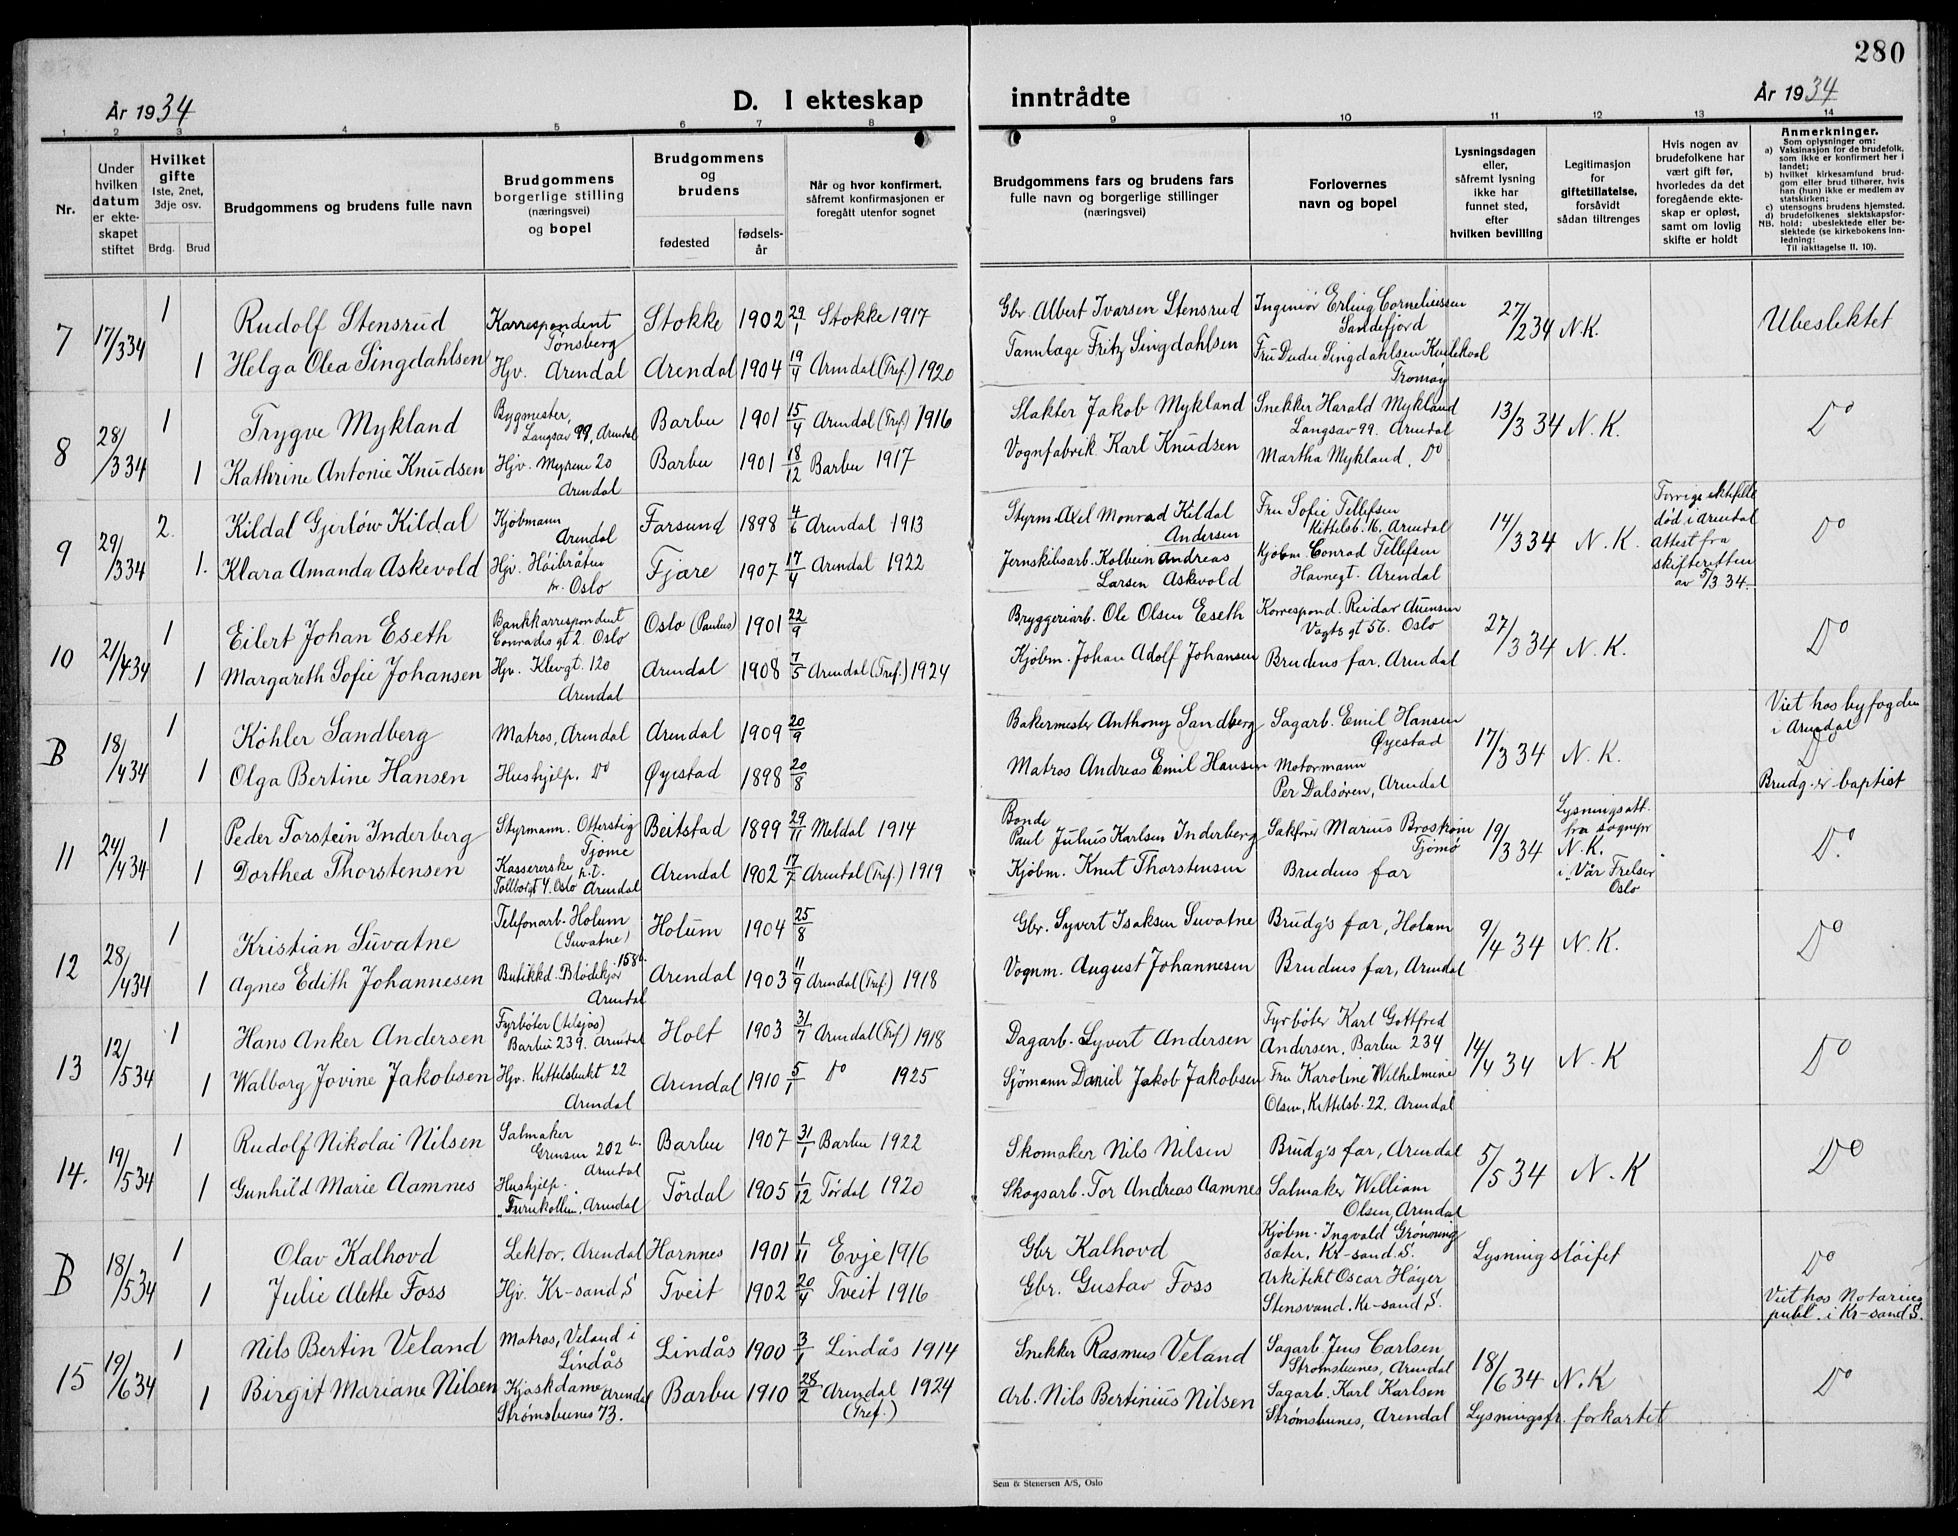 280
År 1934
D. I ekteskap inntrådte
År 1934
1 2 3 4 5 6 7 8 9 10 11 12 13 14
Nr.
Under hvilken datum er ekte-skapet stiftet
Hvilket gifte
1ste, 2net, 3dje osv.
Brdg. Brud
Brudgommens og brudens fulle navn
Brudgommens borgerlige stilling (næringsvei) og bopel
Brudgommens og brudens
fødested
fødsels-år
Når og hvor konfirmert, såfremt konfirmasjonen er foregått utenfor sognet
Brudgommens fars og brudens fars fulle navn og borgerlige stillinger (næringsvei)
Forlovernes navn og bopel
Lysningsdagen eller, såfremt lysning ikke har funnet sted, efter hvilken bevilling
Legitimasjon for giftetillatelse, forsåvidt sådan tiltrenges
Hvis nogen av brudefolkene har vært gift før, hvorledes da det foregående ekte-skap er opløst, samt om lovlig skifte er holdt
Anmerkninger.
Som oplysninger om:
a) Vaksinasjon for de brudefolk, som ikke er konfirmert her i landet;
b) hvilket kirkesamfund brud-gom eller brud tilhører, hvis han (hun) ikke er medlem av statskirken;
c) utensogns brudens hjemsted.
d) brudefolkenes slektskapsfor-hold: ubeslektede eller be-slektede (se kirkebokens inn-ledning:
NB. Til iakttagelse II. 10).
7 17/3 34 1 Rudolf Stensrud Korrespondent Tønsberg Stokke 1902 29/1 Stokke 1917 Gbr. Albert Ivarsen Stensrud Ingeniør Erling Corneliussen Sandefjord 27/2 34 N.K. Ubeslektet
1 Helga Olea Singdahlsen Hjv. Arendal Arendal 1904 19/4 Arendal (Tref.) 1920 Tannlæge Fritz Singdahlsen Fru Dudu Singdahlsen Tromøy
8 28/3 34 1 Trygve Mykland Bygmester, Langsæv 99, Arendal Barbu 1901 15/4 Arendal (Tref.) 1916 Slakter Jakob Mykland Snekker Harald Mykland Langsæv 99. Arendal 13/3 34 N.K. Do
1 Kathrine Antonie Knudsen Hjv. Myrene 20 Arendal Barbu 1901 18/12 Barbu 1917 Vognfabrik. Karl Knudsen Martha Mykland. Do
9 29/3 34 2. Kildal Gjerløw Kildal Kjøbmann Arendal Farsund 1898 4/6 Arendal 1913 Styrm. Axel Monrad Kildal Andersen Fru Sofie Tellefsen Kittelsb. 16. Arendal 14/3 34 N.K. Forrige ektefelle død i Arendal attest fra skifteretten av 5/3 34. Do
1. Klara Amanda Askevold Hjv. Höibråten pr. Oslo Fjære 1907 17/4 Arendal 1922 Jernskibsarb. Kolbein Andreas Larsen Askevold Kjøbm. Conrad Tellefsen Havnegt. Arendal
10 21/4 34 1 Eilert Johan Eseth Bankkorrespondent Conradis gt 2. Oslo Oslo (Paulus) 1901 22/9 Bryggeriarb. Ole Olsen Eseth Korrespond. Reidar Vogts gt 56. Oslo 27/3 34 N.K. Do
1 Margareth Sofie Johansen Hjv. Klevgt. 120 Arendal Arendal 1908 7/5 Arendal (Tref.) 1924 Kjøbm. Johan Adolf Johansen Brudens far, Arendal
B 18/4 34 1 Köhler Sandberg Matros, Arendal Arendal 1909 20/9 Bakermester Anthony Sandberg Sagarb. Emil Hansen Øyestad 17/3 34 N.K. Viet hos byfogden i Arendal Do
1 Olga Bertine Hansen Hushjelp. Do Øyestad 1898 20/8 Matros Andreas Emil Hansen Motormann Per Dalsøren, Arendal Brudg. er baptist
11 24/4 34 1 Peder Torstein Inderberg Styrmann. Otterstig Tjöme Beitstad 1899 29/11 Meldal 1914 Bonde Paul Julius Karlsen Inderberg Sakfører Marius Broström Tjömö 19/3 34 Lysningsatt. fra sognepr N.K. i "Vår Frelser Oslo Do.
1 Dorthea Thorstensen Kassererske p.t. Tollbogt 4. Oslo Arendal Arendal 1902 17/7 Arendal (Tref.) 1919 Kjøbm. Knut Thorstensen Brudens far
12 28/4 34 1 Kristian Suvatne Telefonarb. Holum (Suvatne) Holum 1904 25/8 Gbr. Syvert Isaksen Suvatne Brudg's far, Holum 9/4 34 N.K. Do
1 Agnes Edith Johannesen Butikkd. Blödekjær 158b. Arendal Arendal 1903 11/9 Arendal (Tref.) 1918 Vognm. August Johannesen Brudens far, Arendal
13 12/5 34 1 Hans Anker Andersen Fyrbøter (tilsjøs) Barbu 239. Arendal Holt 1903 31/7 Arendal (Tref) 1918 Dagarb. Syvert Andersen Fyrbøter Karl Gottfred Andersen, Barbu 234 14/4 34 N.K Do
1 Walborg Jovine Jakobsen Hjv. Kittelsbukt 22 Arendal Arendal 1910 5/1 Do 1925 Sjömann Daniel Jakob Jakobsen Fru Karoline Wilhelmine Olsen, Kittelsb. 22. Arendal
14. 19/5 34 1 Rudolf Nikolai Nilsen Salmaker Grensen 202 b. Arendal Barbu 1907 31/1 Barbu 1922 Skomaker Nils Nilsen Brudg's far, Arendal 5/5 34 N.K Do
1 Gunhild Marie Aamnes Hushjelp. "Furukollen", Arendal Tördal 1905 1/12 Tördal 1920 Skogsarb. Tor Andreas Aamnes Salmaker William Olsen, Arendal
B 18/5 34 1 Olav Kalhovd Lektor, Arendal Hornnes 1901 1/11 Evje 1916 Gbr Kalhovd Kjøbm. Ingvald Grønning sæter, Kr-sand. S. Lysning sløifet Do
1 Julie Alette Foss Hjv. Kr-sand, S Tveit 1902 20/4 Tveit 1916 Gbr. Gustav Foss Arkitekt Oscar Høyer Stensvand. Kr-sand, S. Viet hos Notarius publ. i Kr-sand S.
15 19/6 34 1 Nils Bertin Veland Matros, Veland i Lindås Lindås 1900 3/1 Lindås 1914 Snekker Rasmus Veland Sagarb. Jens Carlsen Strømsbunes, Arendal 18/6 34 N.K Do
1 Birgit Mariane Nilsen Kjoskdame Arendal Strømsbunes 73. Barbu 1910 28/2 Arendal 1924 (Tref.) Arb. Nils Bertinius Nilsen Sagarb. Karl Karlsen Strømsbunes, Arendal Lysningsfr. forkortet
Sem & Stenersen A/S, Oslo